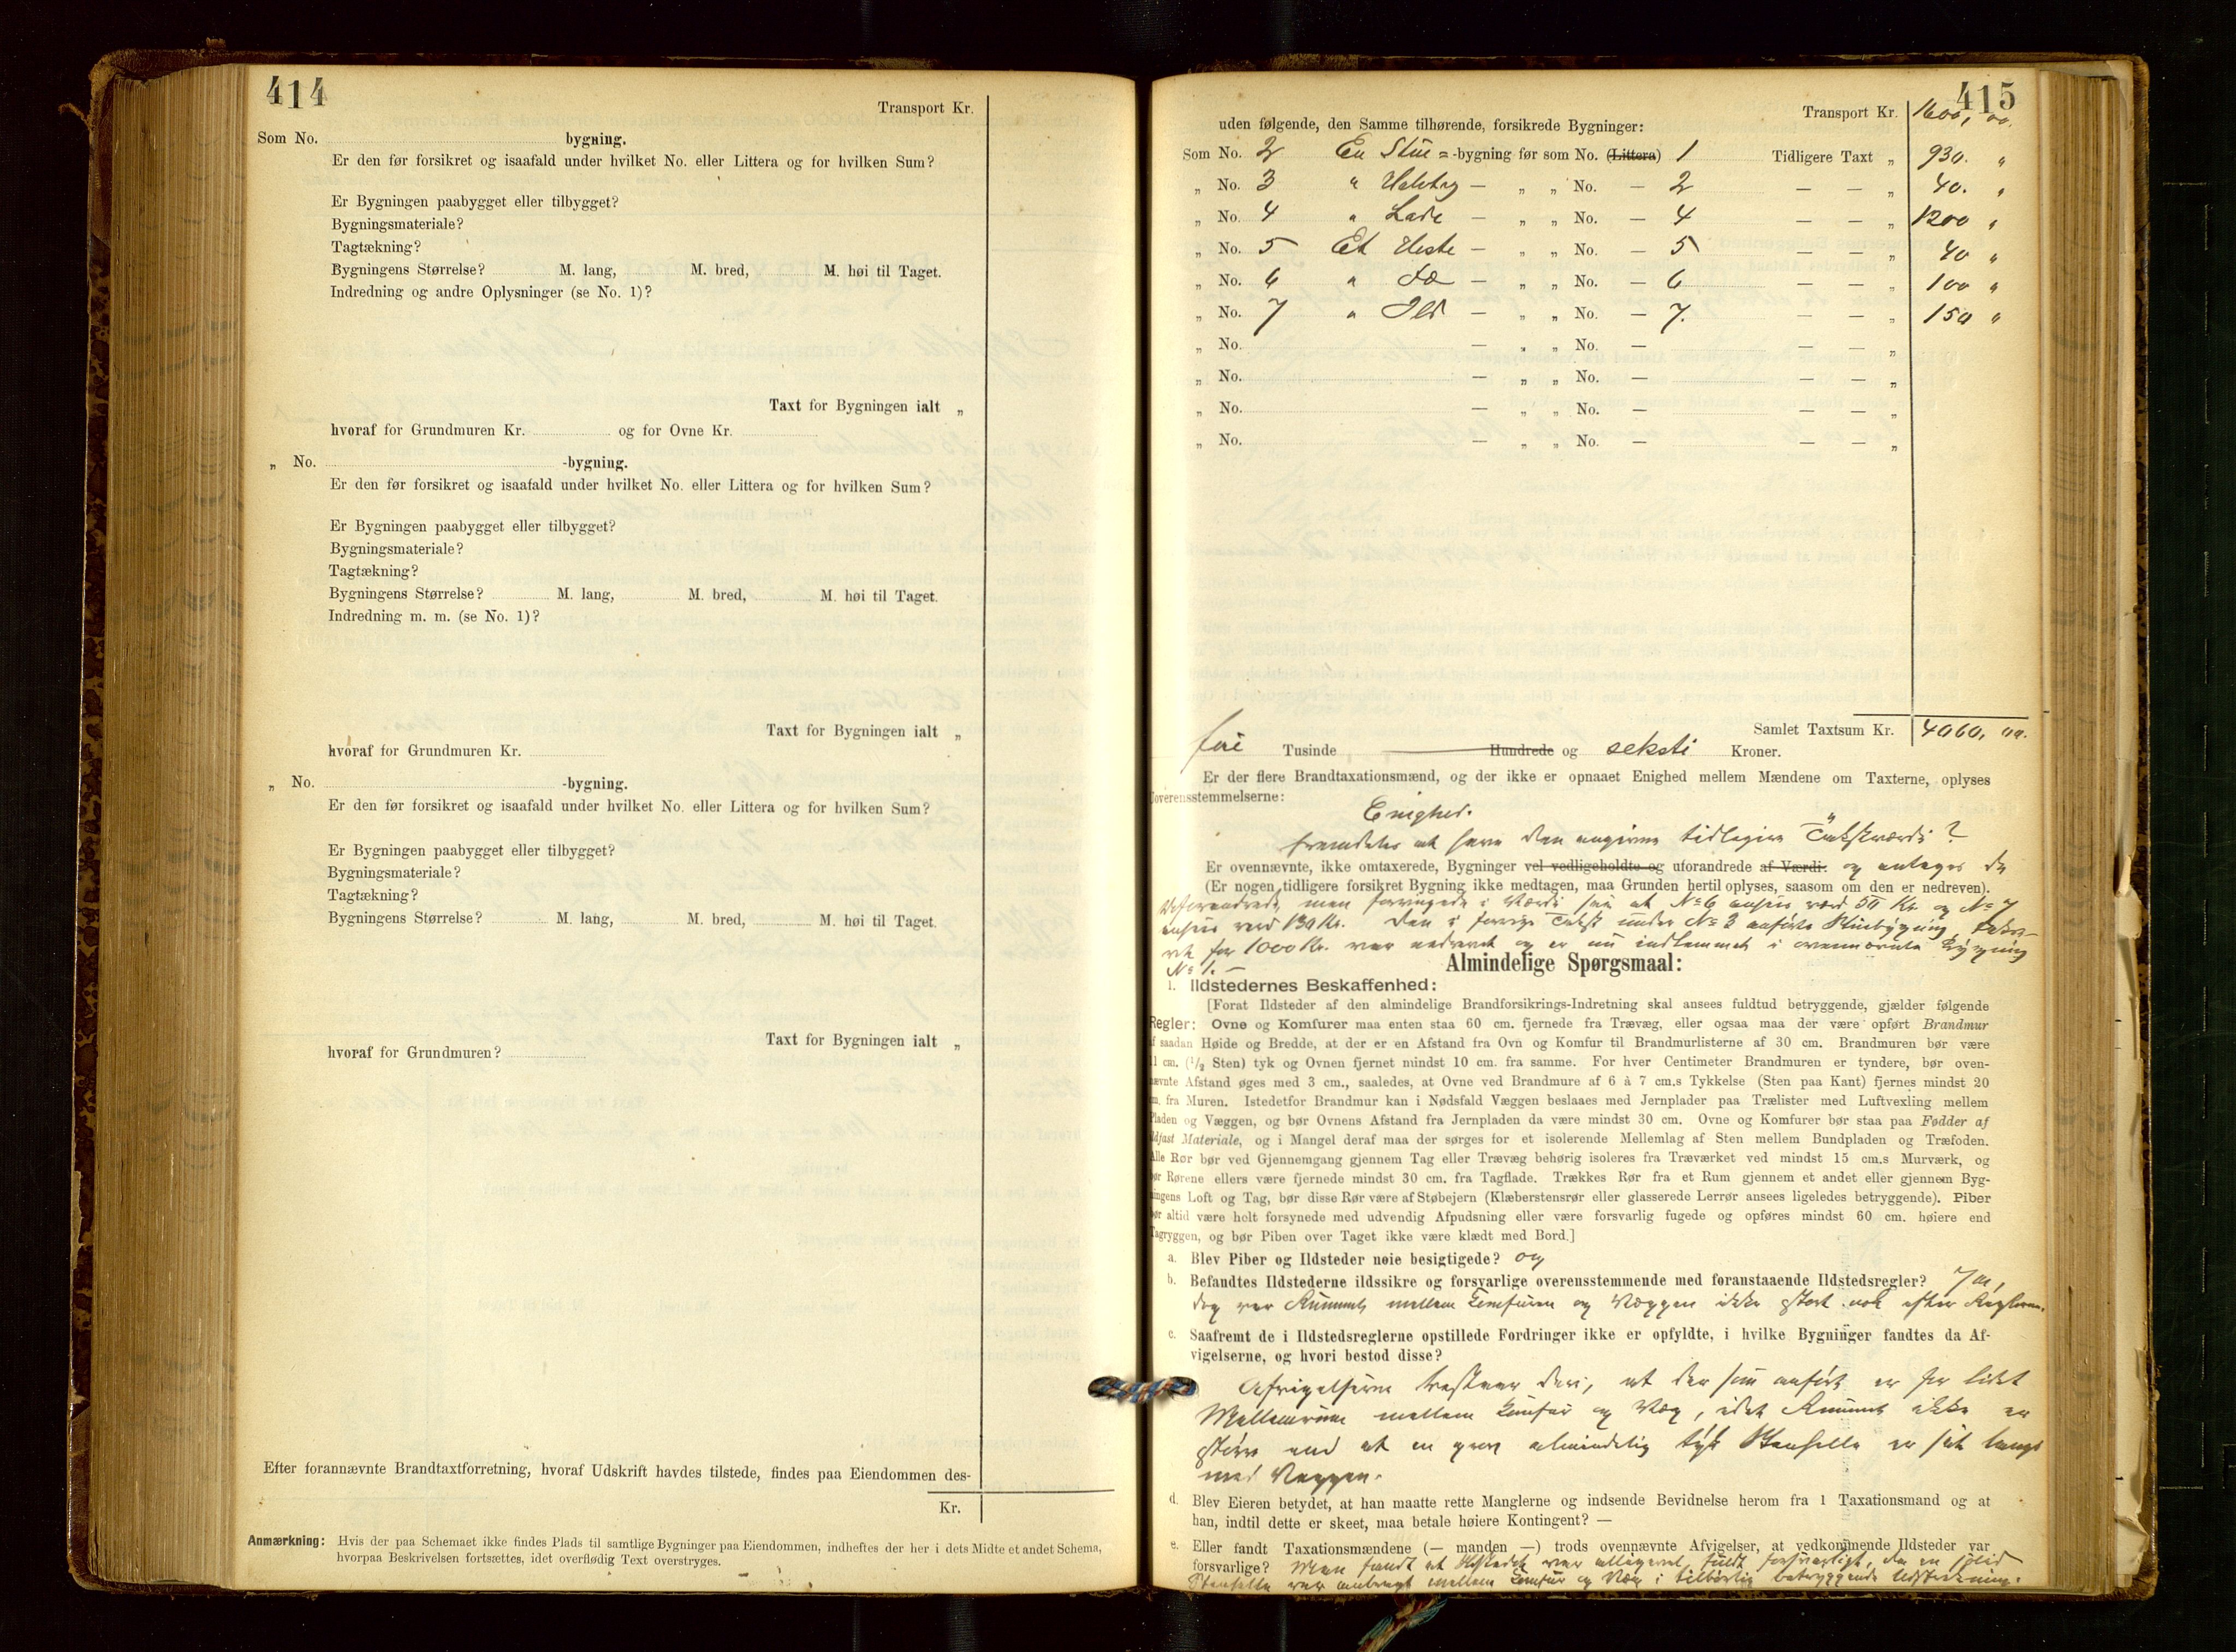 414
Transport Kr.
Som No. bygning.
Er den før forsikret og isaafald under hvilket No. eller Littera og for hvilken Sum?
Er Bygningen paabygget eller tilbygget?
Bygningsmateriale?
Tagtækning?
Bygningens Størrelse? M. lang, M. bred, M. høi til Taget.
Indredning og andre Oplysninger (se No. 1)?
Taxt for Bygningen ialt „
hvoraf for Grundmuren Kr. og for Ovne Kr.
„ No. -bygning.
Er den før forsikret og isaafald under hvilket No. eller Littera og for hvilken Sum?
Er Bygningen paabygget eller tilbygget?
Bygningsmateriale?
Tagtækning?
Bygningens Størrelse? M. lang, M. bred, M. høi til Taget.
Indredning m. m. (se No. 1)?
Taxt for Bygningen ialt „
hvoraf for Grundmuren Kr.
„ No. -bygning.
Er den før forsikret og isaafald under hvilket No. eller Littera og for hvilken Sum?
Er Bygningen paabygget eller tilbygget?
Bygningsmateriale?
Tagtækning?
Bygningens Størrelse? M. lang, M. bred, M. høi til Taget.
Taxt for Bygningen ialt „
hvoraf for Grundmuren?
Efter forannævnte Brandtaxtforretning, hvoraf Udskrift havdes tilstede, findes paa Eiendommen des-
Kr.
Anmærkning: Hvis der paa Schemaet ikke findes Plads til samtlige Bygninger paa Eiendommen, indheftes der her i dets Midte et andet Schema,
hvorpaa Beskrivelsen fortsættes, idet overflødig Text overstryges.
415
Transport Kr. 1600, 00.
uden følgende, den Samme tilhørende, forsikrede Bygninger:
Som No. 2 En Stue= -bygning før som No. (Littera) 1 Tidligere Taxt „ 930. "
„ No. 3 " — „ „ No. — 2 — — „ 40. "
„ No. 4 " Lade — „ „ No. — 4 — — „ 1200 "
„ No. 5 Et Heste — „ „ No. — 5 — — „ 40 "
„ No. 6 " Fæ — „ „ No. — 6 — — „ 100 "
„ No. 7 " Ild — „ „ No. — 7. — — „ 150 "
„ No. — „ „ No. — — — „
„ No. — „ „ No. — — — „
„ No. — „ „ No. — — — „
„ No. — „ „ No. — — — „
Samlet Taxtsum Kr. 4060, 00.
fire Tusinde Hundrede og seksti Kroner.
Er der flere Brandtaxationsmænd, og der ikke er opnaaet Enighed mellem Mændene om Taxterne, oplyses
Uoverensstemmelserne:
Enighed.
fremdeles at have den angivne tidligere Takstværdi?
Er ovennævnte, ikke omtaxerede, Bygninger vel vedligeholdte og uforandrede af Værdi: og antages de
(Er nogen tidligere forsikret Bygning ikke medtagen, maa Grunden hertil oplyses, saasom om den er nedreven).
Uforandrede, men forringede i Værdi saa at No 6 ansees værd 50 Kr. og No 7
ansees værd 130 Kr. Den i forrige Takst under No 3 anførte Stuebygning, takse-
ret for 1000 Kr. var nedrevet og er nu indlemmet i ovennævnte Bygning
No 1. —
Almindelige Spørgsmaal:
1. Ildstedernes Beskaffenhed:
[Forat Ildsteder af den almindelige Brandforsikrings-Indretning skal ansees fuldtud betryggende, gjælder følgende
Regler: Ovne og Komfurer maa enten staa 60 cm. fjernede fra Trævæg, eller ogsaa maa der være opført Brandmur
af saadan Høide og Bredde, at der er en Afstand fra Ovn og Komfur til Brandmurlisterne af 30 cm. Brandmuren bør være
11 cm. (1/2 Sten) tyk og Ovnen fjernet mindst 10 cm. fra samme. For hver Centimeter Brandmuren er tyndere, bør oven-
nævnte Afstand øges med 3 cm., saaledes, at Ovne ved Brandmure af 6 à 7 cm.s Tykkelse (Sten paa Kant) fjernes mindst 20
cm. fra Muren. Istedetfor Brandmur kan i Nødsfald Væggen beslaaes med Jernplader paa Trælister med Luftvexling mellem
Pladen og Væggen, og bør Ovnens Afstand fra Jernpladen da være mindst 30 cm. Ovne og Komfurer bør staa paa Fødder af
ildfast Materiale, og i Mangel deraf maa der sørges for et isolerende Mellemlag af Sten mellem Bundpladen og Træfoden.
Alle Rør bør ved Gjennemgang gjennem Tag eller Trævæg behørig isoleres fra Træværket ved mindst 15 cm.s Murværk, og
bør Rørene ellers være fjernede mindst 30 cm. fra Tagflade. Trækkes Rør fra et Rum gjennem et andet eller gjennem Byg-
ningens Loft og Tag, bør disse Rør være af Støbejern (Klæberstensrør eller glasserede Lerrør ansees ligeledes betryggende). Piber
bør altid være helt forsynede med udvendig Afpudsning eller være forsvarlig fugede og opføres mindst 60 cm. høiere end
Tagryggen, og bør Piben over Taget ikke være klædt med Bord.]
a. Blev Piber og Ildsteder nøie besigtigede?
b. Befandtes Ildstederne ildssikre og forsvarlige overensstemmende med foranstaaende Ildstedsregler? Ja,
dog var Rummet mellem Komfuren og Væggen ikke stort nok efter Reglerne.
c. Saafremt de i Ildstedsreglerne opstillede Fordringer ikke er opfyldte, i hvilke Bygninger fandtes da Af-
vigelserne, og hvori bestod disse?
Afvigelserne bestaar deri, at der som anført er for lidet
Mellemrum mellem Komfur og Væg, idet Rummet ikke er
større end at en grov almindelig tyk Stenhelle er sat langs
med Væggen.
d. Blev Eieren betydet, at han maatte rette Manglerne og indsende Bevidnelse herom fra 1 Taxationsmand og at
han, indtil dette er skeet, maa betale høiere Kontingent? —
e. Eller fandt Taxationsmændene (— manden —) trods ovennævnte Afvigelser, at vedkommende Ildsteder var
forsvarlige? Man fandt at Ildstedet var alligevel fuldt forsvarligt, da en solid
Stenhelle var anbragt mellem Komfur og Væg i tilbørlig betryggende Udstrækning.